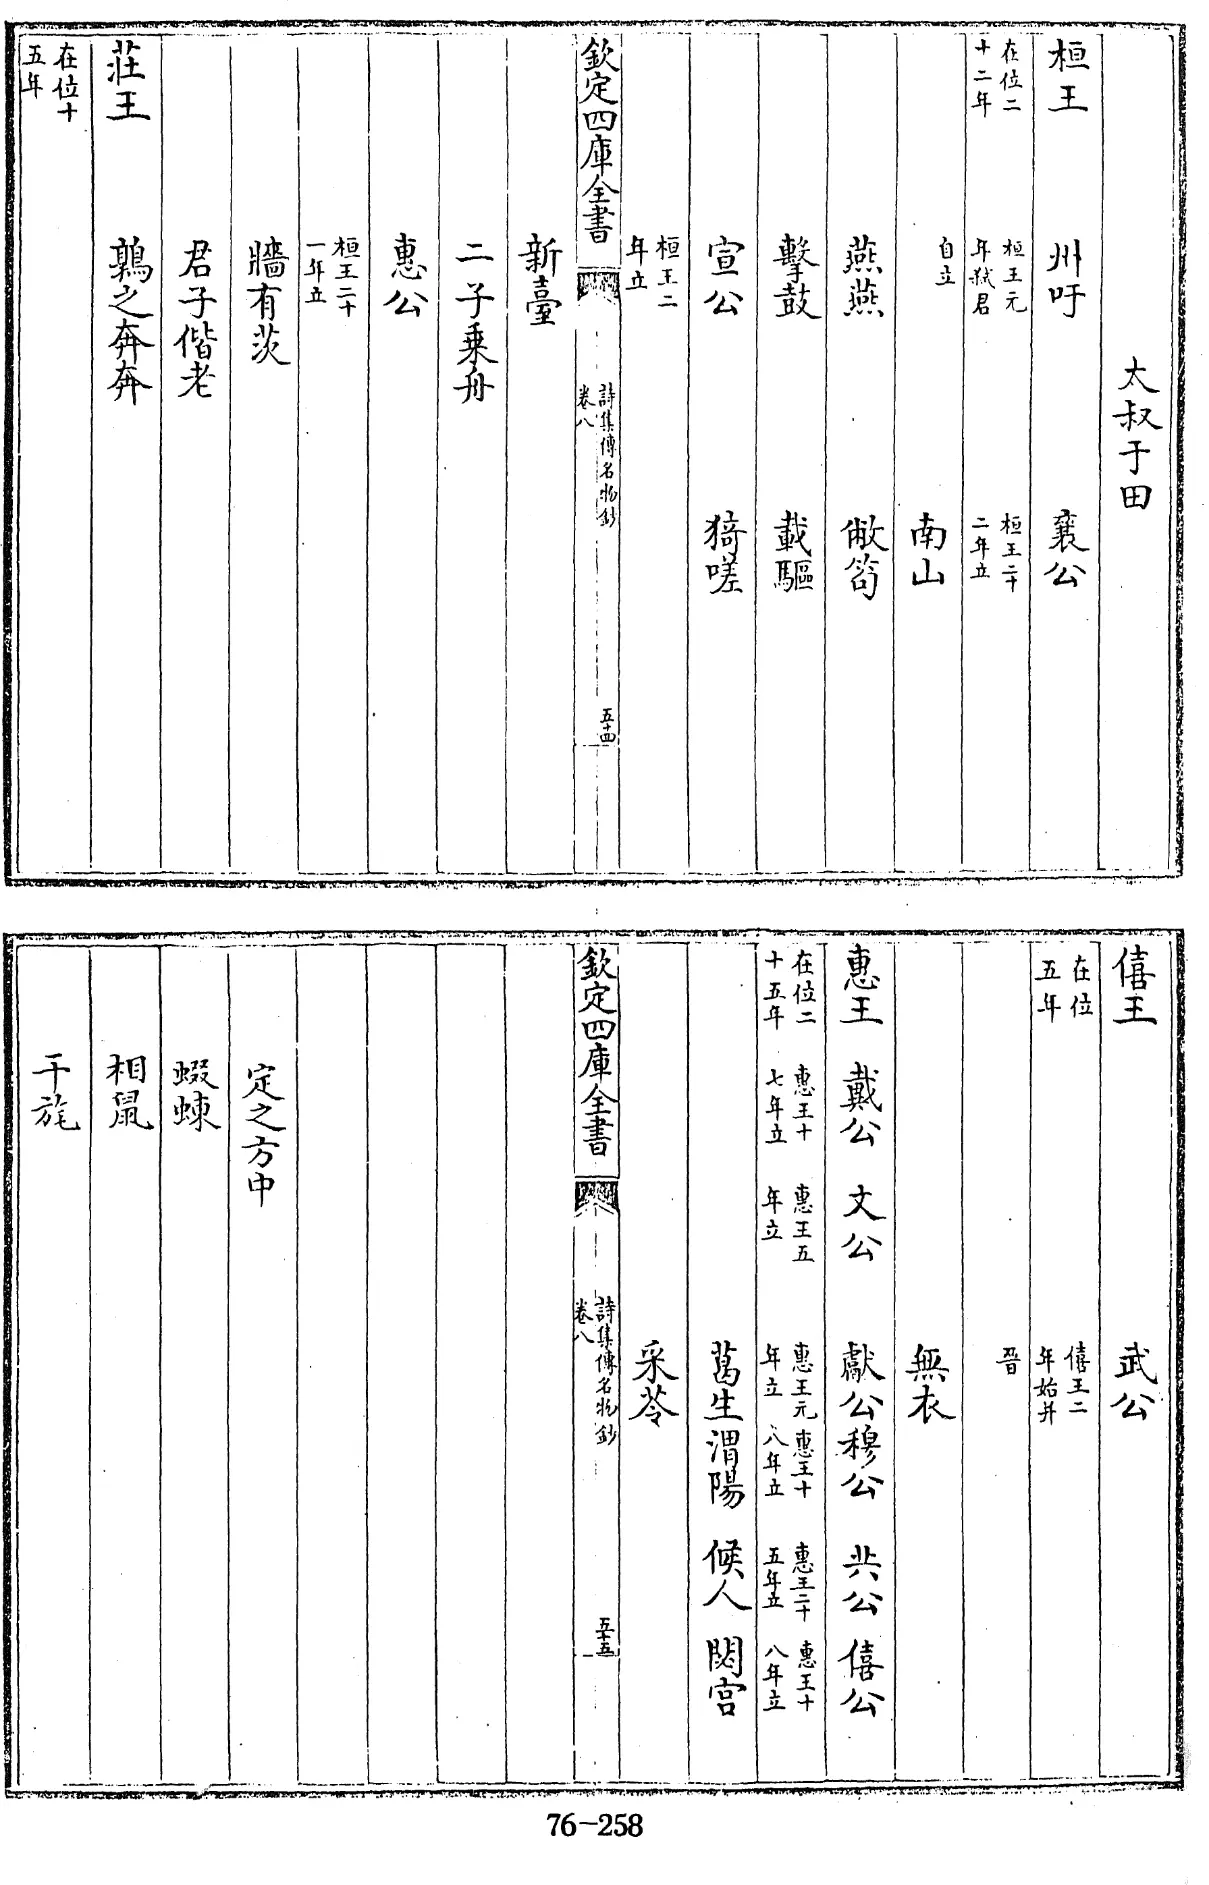 太叔于田
桓王　州吁　襄公
在位二十二年　桓王元年弑君　桓王二十二年立
自立　南山
燕燕　敝笱
擊鼓　載驅
宣公　猗嗟
桓王二年立
欽定四庫全書　詩集傳名物鈔卷八　五十四
新臺
二子乗舟
惠公
桓王二十一年立
牆有茨
君子偕老
莊王　鶉之奔奔
在位十五年
僖王　武公
在位五年　僖王二年始并
晉
無衣
惠王　戴公　文公　獻公　穆公　共公　僖公
在位二十五年　惠王十七年立　惠王五年立　惠王元年立　惠王十八年立　惠王二十五年立　惠王十八年立
葛生　渭陽　候人　閟宮
采苓
欽定四庫全書　詩集傳名物鈔卷八　五十五
定之方中
蝃蝀
相鼠
干旄
76-258